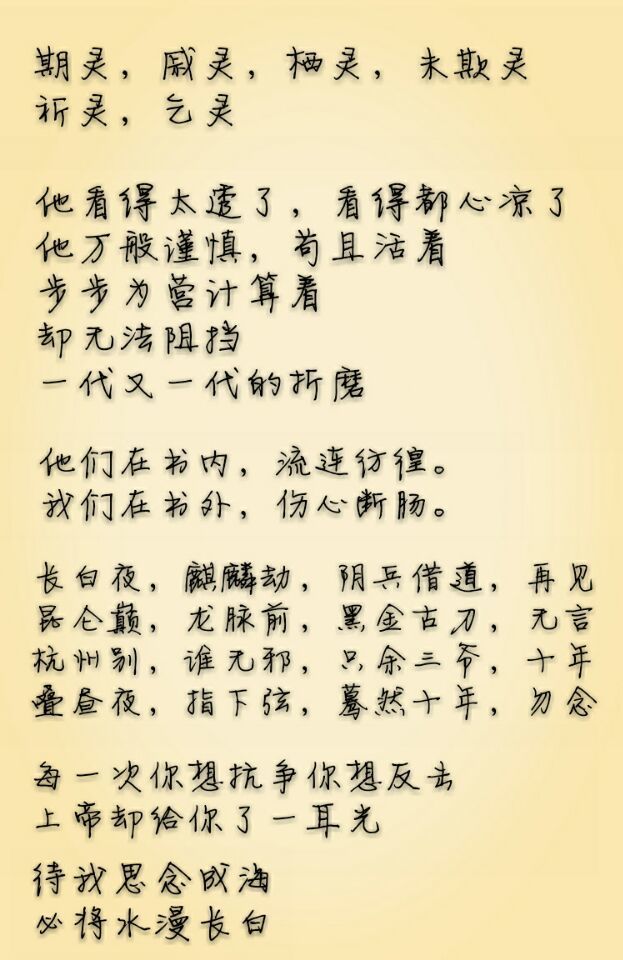 期灵，戚灵，栖灵，未欺灵
祈灵，乞灵
他看得太透了，看得都心凉了
他万般谨慎，苟且活着
步步为营计算着
却无法阻挡
一代又一代的折磨
他们在书内，流连彷徨。
我们在书外，伤心断肠。
长白夜，麒麟劫，阴兵借道，再见
昆仑巅，龙脉前，黑金古刀，无言
杭州别，谁无邪，只余三爷，十年
叠昼夜，指下弦，蓦然十年，勿念
每一次你想抗争你想反击
上帝却给你了一耳光
待我思念成海
必将水漫长白